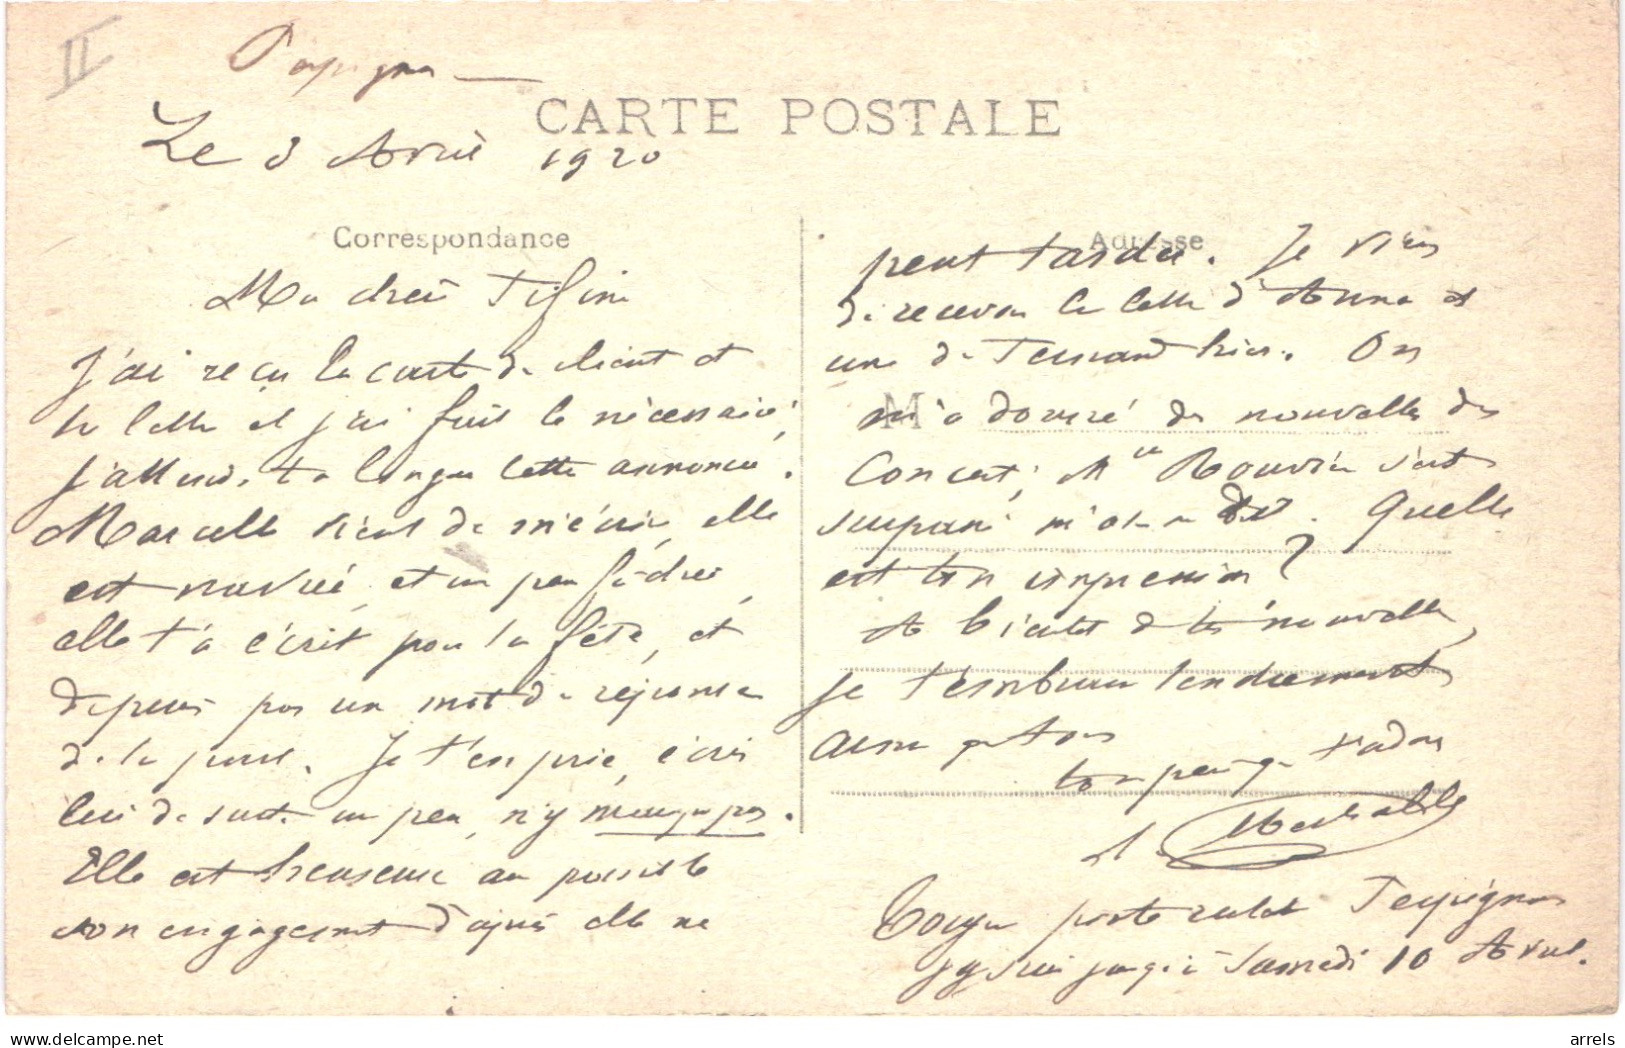 II
Perpignan
CARTE POSTALE
Le 3 Avril 1920
Correspondance
Ma chère Fifine
J'ai reçu la carte de client et
ta lettre et j'ai fait le nécessaire,
j'attends ta longue lettre annoncée.
Marcelle vient de m'écrire, elle
est navrée, et un peu fâchée,
elle t'a écrit pour ta fête, et
depuis pas un mot de réponse
de ta part. Je t'en prie, écris
lui de suite un peu, n'y manque pas.
Elle est heureuse au possible
son engagement d'après elle ne
Adresse
peut tarder. Je viens
de recevoir la lettre d'Anna et
une de Fernand hier. On
M
m'a donné des nouvelles du
Concert, Mlle Rouvier s'est
surpassé m'a-t-on dit. Quelle
est ton impression?
A bientôt de tes nouvelles,
je t'embrasse tendrement
ainsi que tous
ton qui t'adore
Toujours poste restante Perpignan
j'y suis jusqu'à Samedi 10 Avril.
© www.delcampe.net
arrels